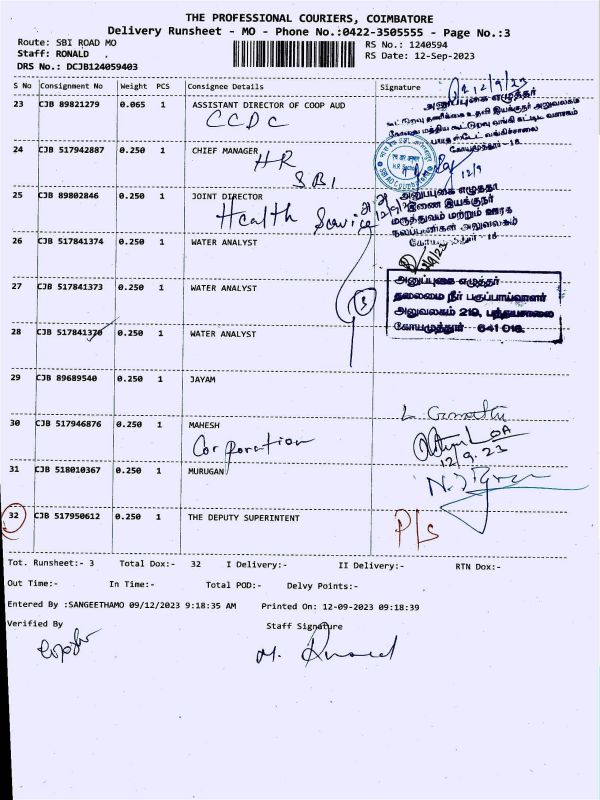 THE PROFESSIONAL COURIERS, COIMBATORE
Delivery Runsheet - MO - Phone No.:0422-3505555 - Page No.:3
Route: SBI ROAD MO
RS No.: 1240594
Staff: RONALD ,
RS Date: 12-Sep-2023
DRS No.: DCJB124059403
S No Consignment No Weight PCS Consignee Details Signature
12/9/23
23 CJB 89821279 0.065 1 ASSISTANT DIRECTOR OF COOP AUD
CCDC
அனுப்புகை எழுத்தர்
கோயமுத்தூர் - 18
24 CJB 517942887 0.250 1 CHIEF MANAGER
HR
SBI
12/9
25 CJB 89802846 0.250 1 JOINT DIRECTOR
Health Service
அனுப்புகை எழுத்தர்
இணை இயக்குநர்
மருத்துவம் மற்றும் ஊரக
நலப்பணிகள் அலுவலகம்
கோயமுத்தூர் - 18
26 CJB 517841374 0.250 1 WATER ANALYST
27 CJB 517841373 0.250 1 WATER ANALYST
3
அனுப்புகை எழுத்தர்
தலைமை நீர் பகுப்பாய்வாளர்
அலுவலகம் 219, பந்தயசாலை
கோயமுத்தூர் - 641 018.
28 CJB 517841370 0.250 1 WATER ANALYST
29 CJB 89689540 0.250 1 JAYAM
30 CJB 517946876 0.250 1 MAHESH
Corporation
12/9.23
31 CJB 518010367 0.250 1 MURUGAN
32 CJB 517950612 0.250 1 THE DEPUTY SUPERINTENT
P/s
Tot. Runsheet:- 3 Total Dox:- 32 I Delivery:- II Delivery:- RTN Dox:-
Out Time:- In Time:- Total POD:- Delvy Points:-
Entered By :SANGEETHAMO 09/12/2023 9:18:35 AM Printed On: 12-09-2023 09:18:39
Verified By Staff Signature